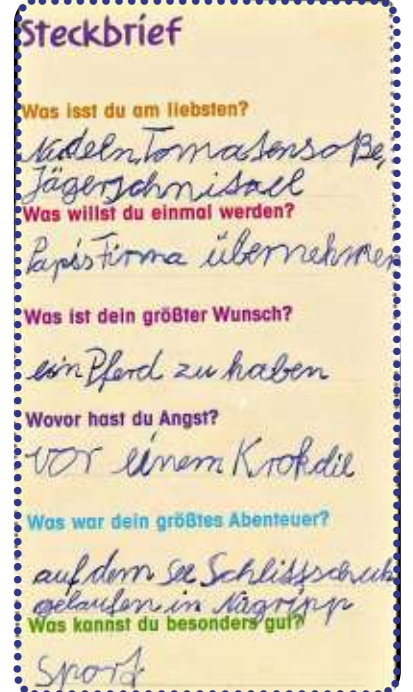 Steckbrief
Was isst du am liebsten?
Nudeln, Tomatensoße,
Jägerschnitael
Was willst du einmal werden?
Papis Firma übernehmen
Was ist dein größter Wunsch?
ein Pferd zu haben
Wovor hast du Angst?
vor einem Krokdie
Was war dein größtes Abenteuer?
auf dem See Schlisschuh
gelaufen in
Was kannst du besonders gut?
Sport